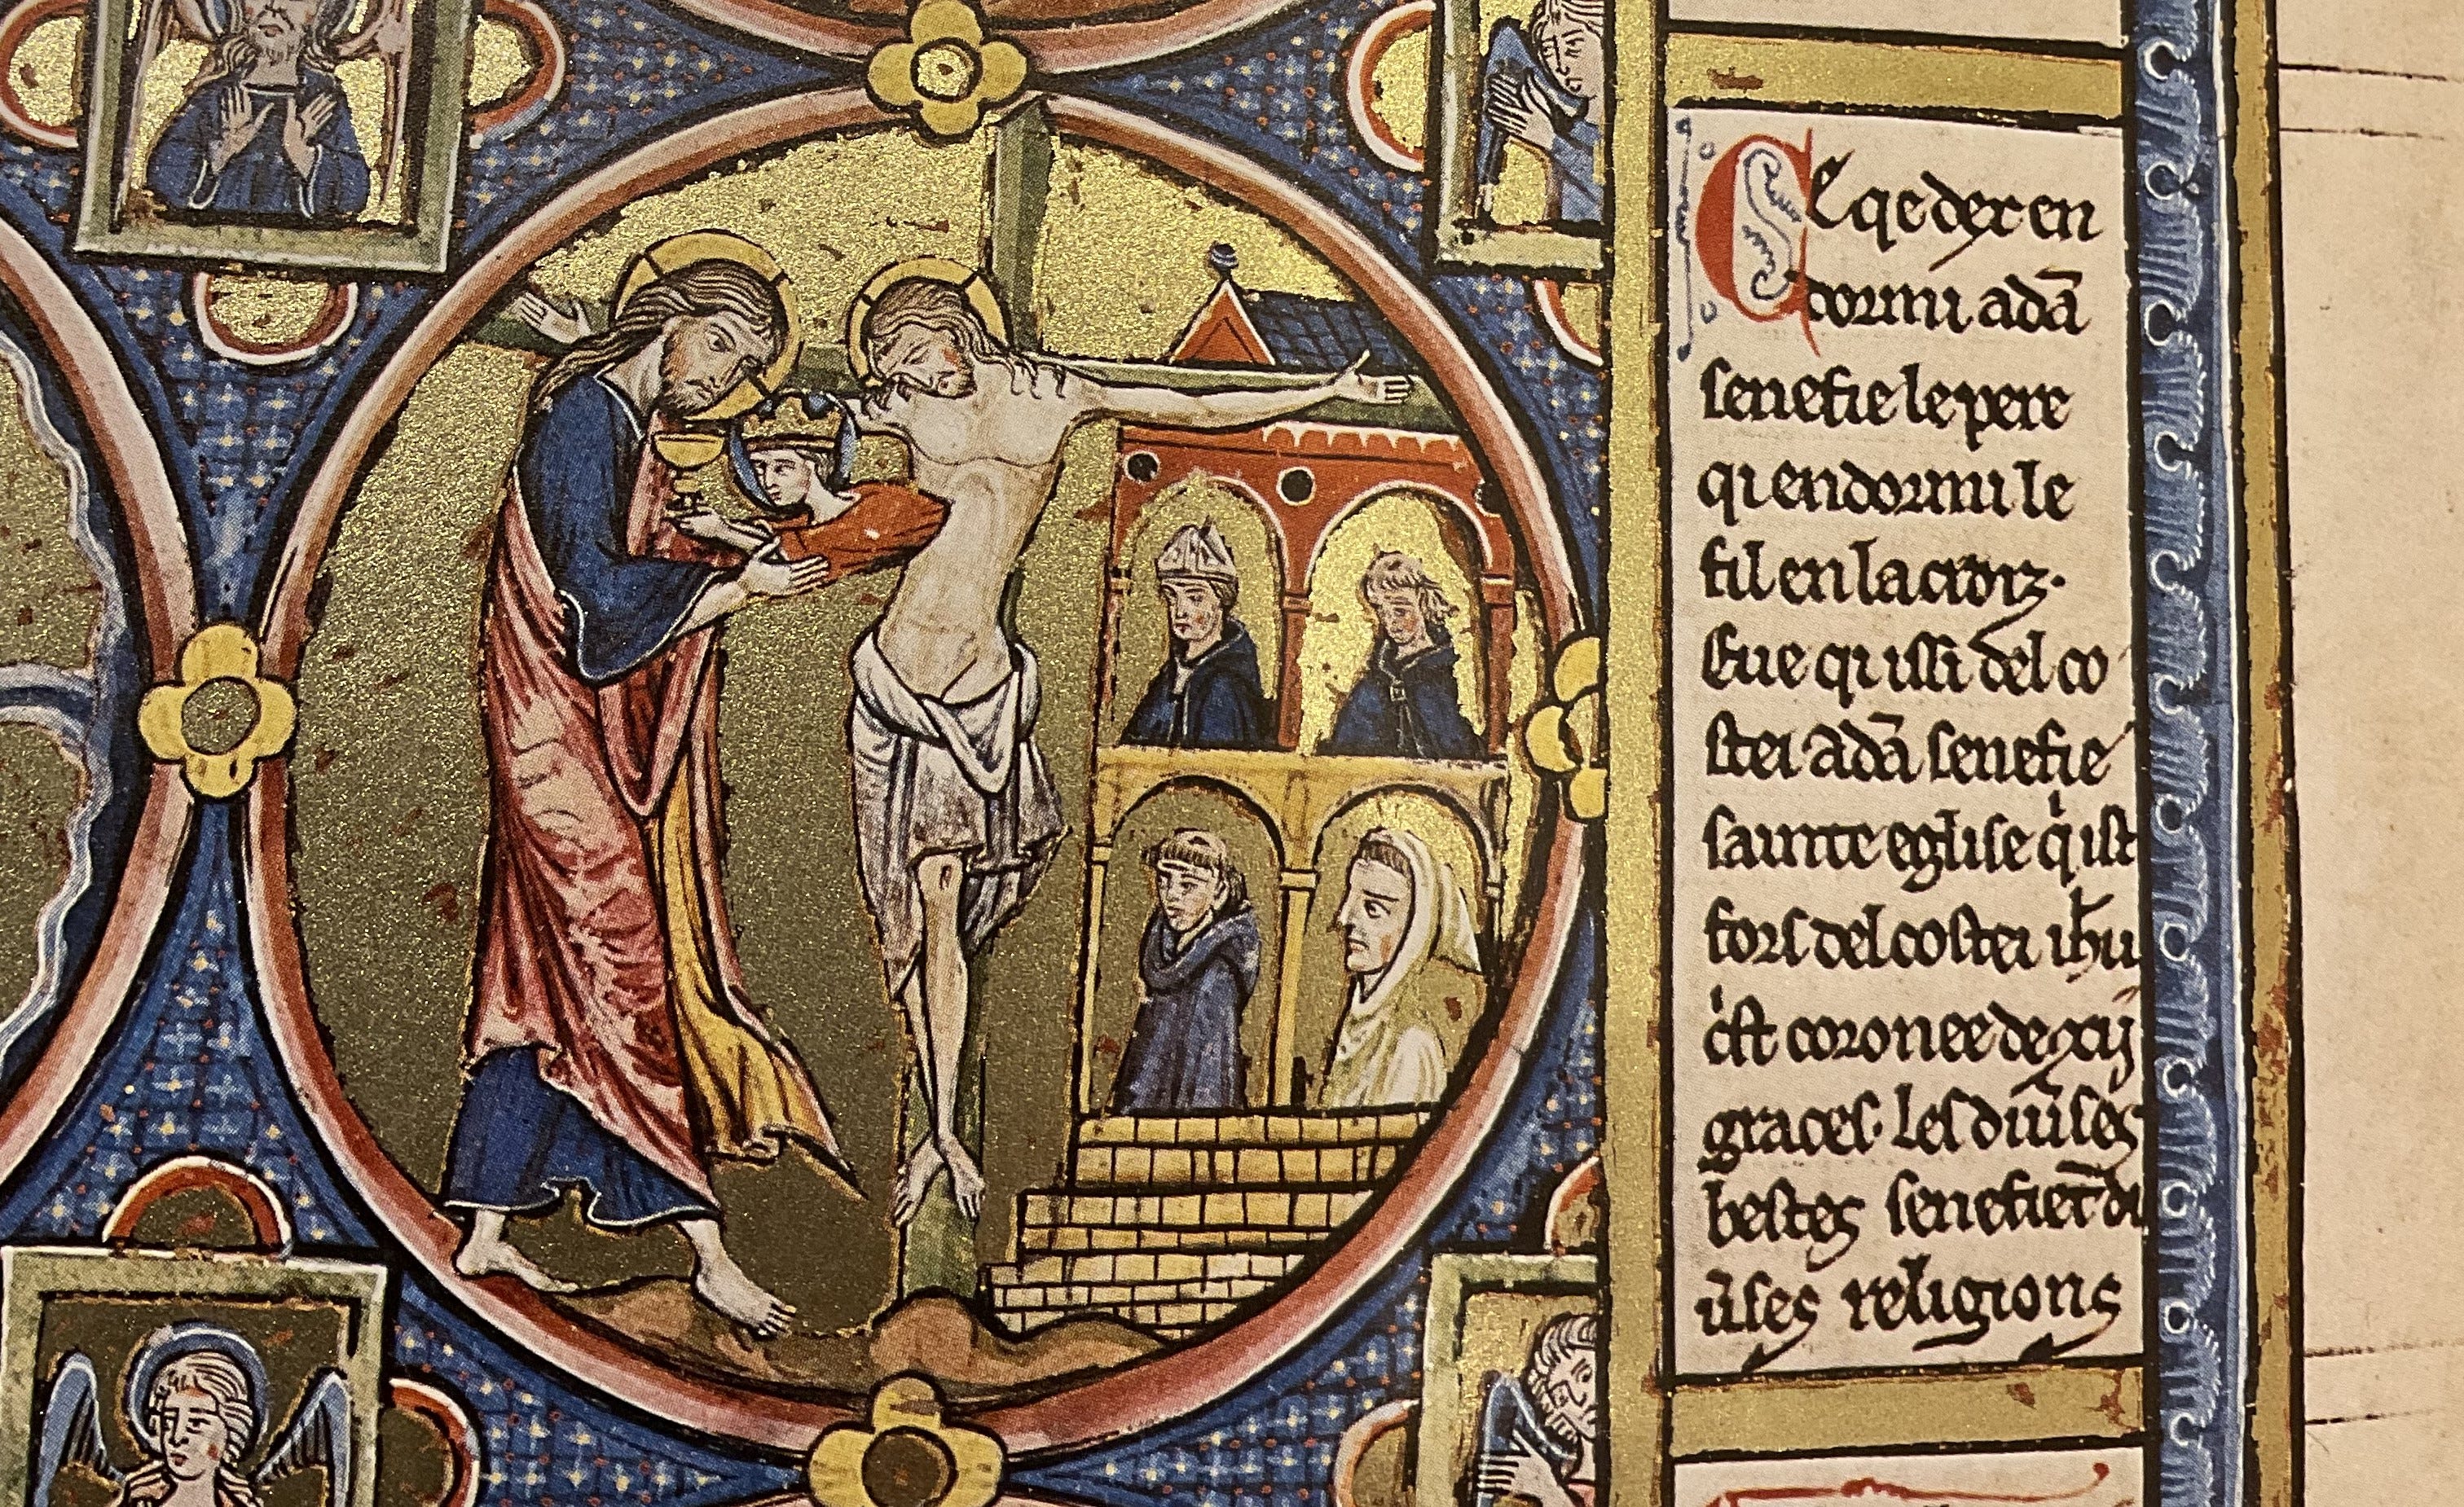 Cel qe dex en
dormi adā
senefie le pere
qi endormi le
fil en la croiz.
Eue qi issi del co
stei adā senefie
sainte eglise q ist
fors del costei ihu
crist coronee de xij
graces. les diuses
bestes senefiēt di
uses religions